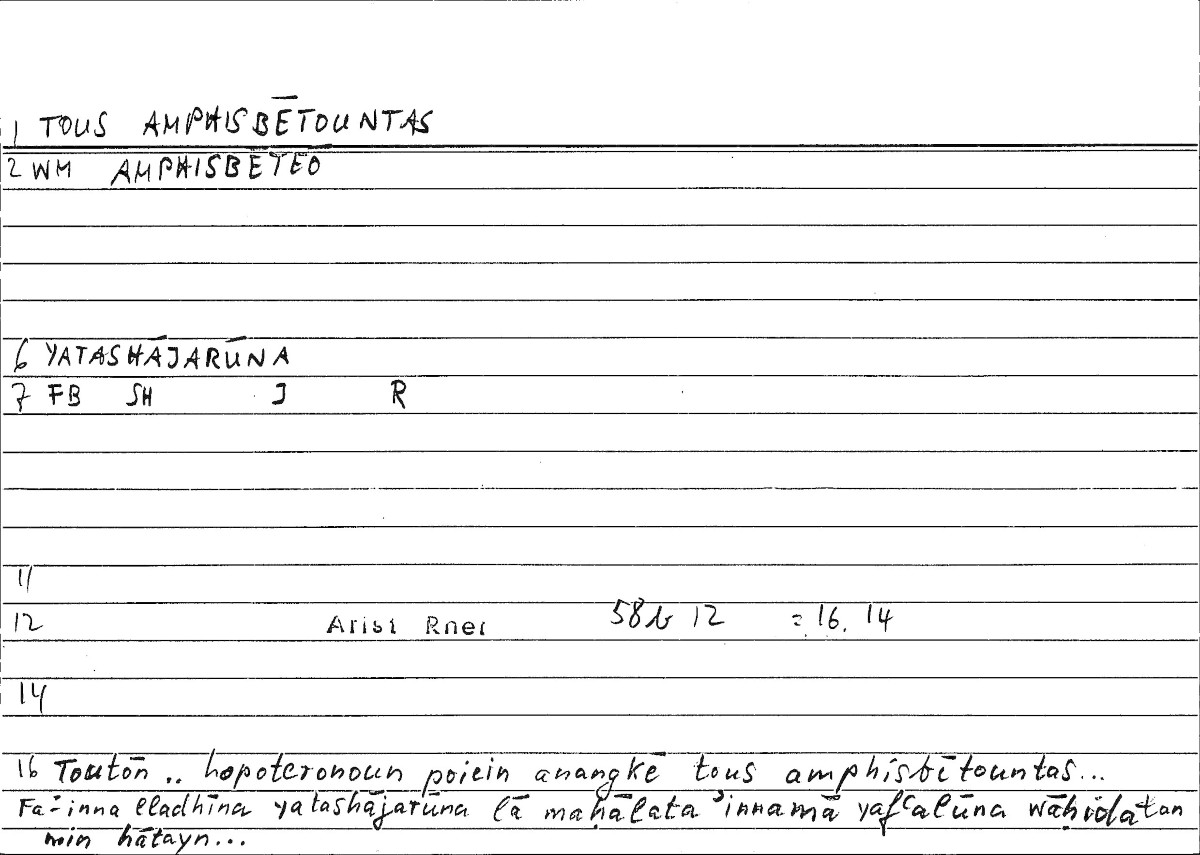 1 TOUS AMPHISBĒTOUNTAS
2 WM AMPHISBĒTEŌ
6 YATASHĀJARŪNA
7 FB SH J R
11
12 Arist Rhet 58b 12 = 16. 14
14
16 Toutōn .. hopoteronoun poiein anangkē tous amphisbētountas...
Fa-'inna lladhīna yatashājarūna lā maḥālata 'innamā yafʿalūna wāḥidatan
min hātayn...